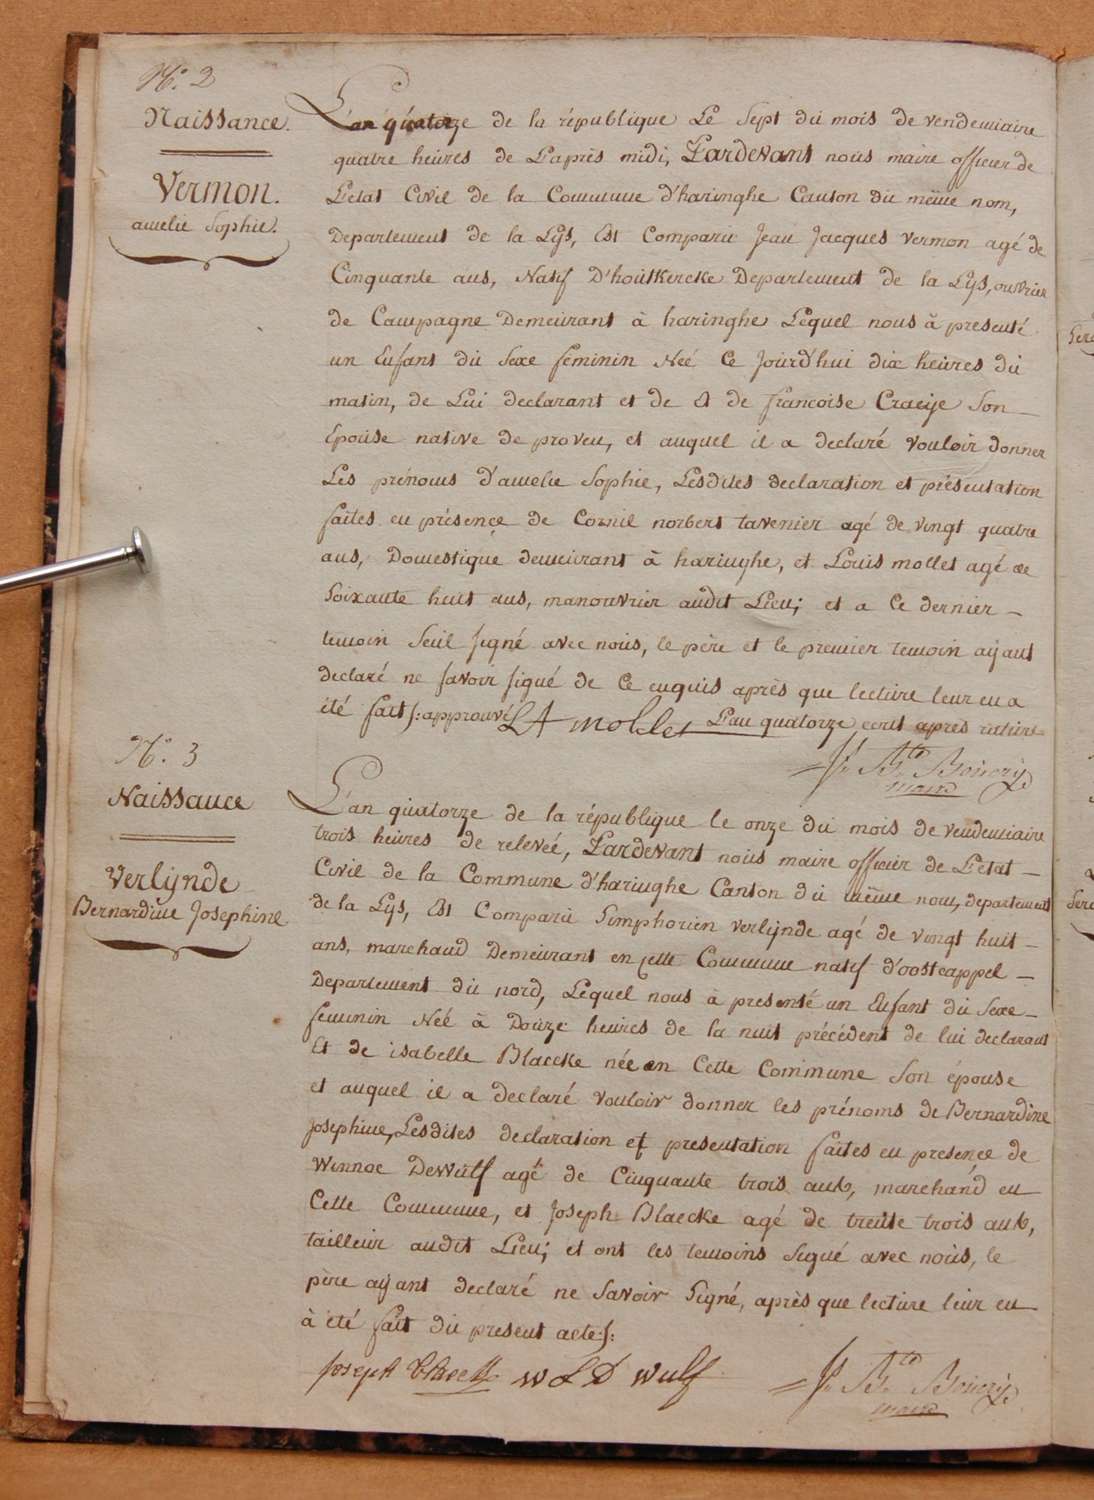 N.° 2
Naissance.
Vermon.
amelie Sophie.
L'an quatorze de la république Le Sept du mois de vendemiaire
quatre heures de L'après midi, Pardevant nous maire officier de
L'etat Civil de la Commune d'haringhe Canton du même nom,
Departement de la Lÿs, Est Comparu Jean Jacques vermon agé de
Cinquante ans, Natif D'houtkercke Departement de la Lÿs, ouvrier
de Campagne Demeurant à haringhe Lequel nous à presenté
un Enfant du Sexe feminin Neé Ce Jourd'hui dix heures du
matin, de Lui declarant et de & de francoise Craeÿe Son
Epouse native de proven, et auquel il a declaré vouloir donner
Les prénoms d'amelie Sophie, Lesdites declaration et présentation
faites en présence de Cornil norbert tavenier agé de vingt quatre
ans, Domestique demeurant à haringhe, et Louis mollet agé de
Soixante huit ans, manouvrier audit Lieu; et a Ce dernier
temoin Seul signé avec nous, le père et le premier temoin aÿant
declaré ne savoir signé de Ce enquis après que lecture leur en a
été fait ʃ: approuvé L A mollet L'an quatorze ecrit après rature
J. Bte Bouerÿe
maire
N.° 3
Naissance
Verlÿnde
Bernardine Josephine
L'an quatorze de la république le onze du mois de vendemiaire
trois heures de relevéé, Pardevant nous maire officier de L'etat
Civil de la Commune d'haringhe Canton du même nom, departement
de la Lÿs, Est Comparu Simphorien verlÿnde agé de vingt huit
ans, marchand Demeurant en cette Commune natif d'oosteappel
Departement du nord, Lequel nous à presenté un Enfant du Sexe
feminin Neé à Douze heures de la nuit précédent de lui declarant
Et de isabelle Blaecke née en Cette Commune Son épouse
et auquel il a declaré vouloir donner les prénoms de Bernardine
Josephine, Lesdites declaration et presentation faites en presence de
Winnoc Dewulf agé de Cinquante trois ans, marchand en
Cette Commune, et Joseph Blaecke agé de trente trois ans,
tailleur audit Lieu; et ont les temoins signé avec nous, le
père aÿant declaré ne Savoir Signé, après que lecture leur en
à été fait du present acte ʃ:
Joseph W L D wulf
J. Bte Bouerÿe
maire